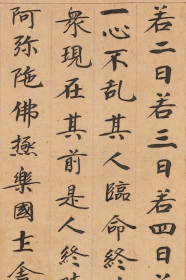 若二日若三日若四日若
一心不乱其人臨命終
衆現在其前是人終時
阿弥陁佛極樂國土舍